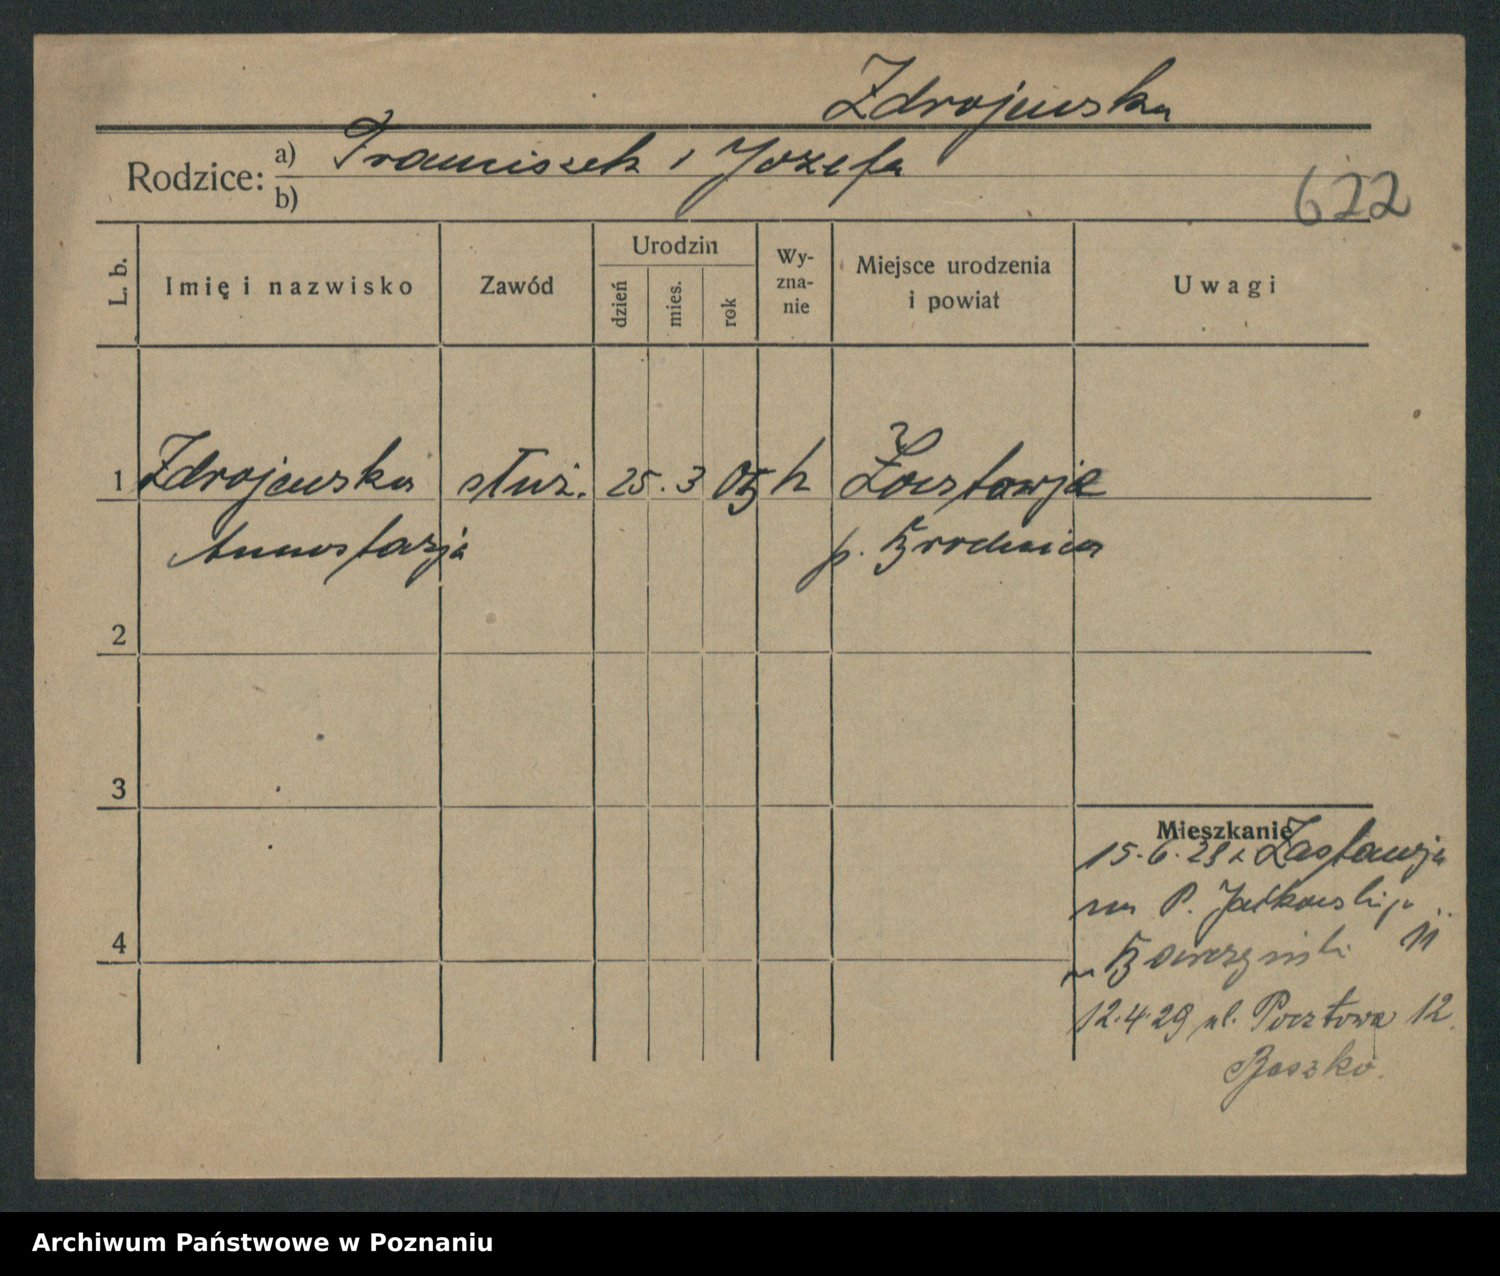 Zdrojewska
Rodzice: a) Franciszek i Jozefa
b)
622
L. b.
Imię i nazwisko
Zawód
Urodzin
dzień
mies.
rok
Wy-
zna-
nie
Miejsce urodzenia
i powiat
Uwagi
1 Zdrojewska służ. 25. 3 05 k Zastawje
Annastazja p. Brodnica
2
3
4
Mieszkanie
15. 6. 28 z Zastawja
na P. Jałkowskiego
11
12. 4. 29 ul. Pocztowa 12.
Archiwum Państwowe w Poznaniu